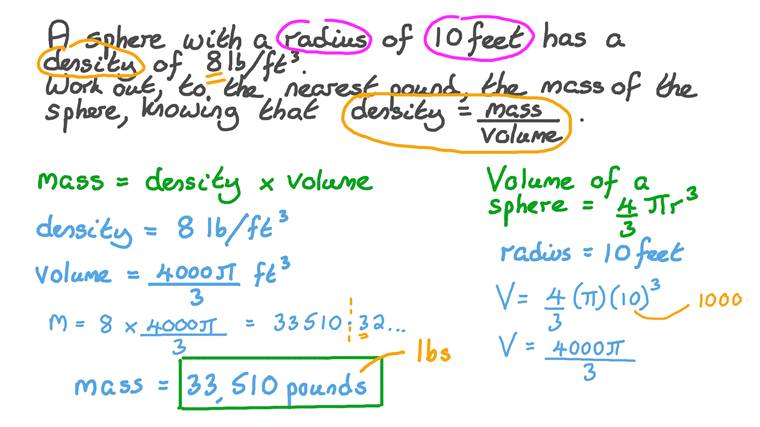 A sphere with a radius of 10 feet has a
density of 8 lb/ft³.
Work out, to the nearest pound, the mass of the
sphere, knowing that density = mass/volume.
mass = density × volume
density = 8 lb/ft³
volume = 4000π/3 ft³
m = 8 × 4000π/3 = 33510.32...
lbs
mass = 33,510 pounds
Volume of a
sphere = 4/3 πr³
radius = 10 feet
V = 4/3 (π)(10)³
1000
V = 4000π/3